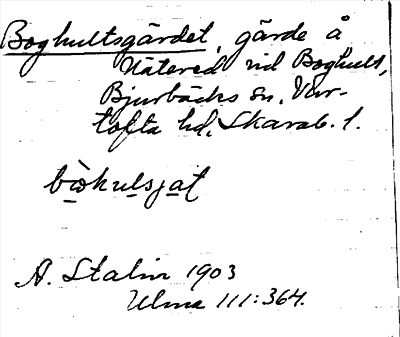 Boghultsgärdet, gärde å
Nätered vid Boghult,
Bjurbäcks sn. Var-
tofta hd, Skarab. l.
bo̠kulsjat
A. Stalin 1903
Ulma 111:364.